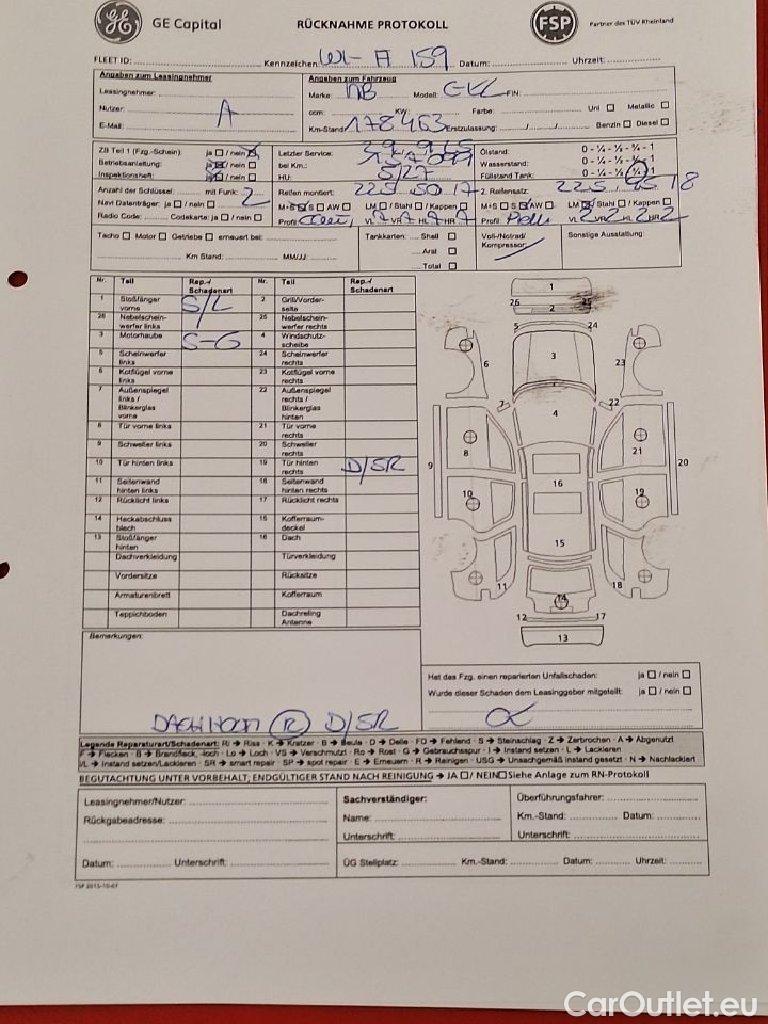 GE Capital RÜCKNAHME PROTOKOLL FSP Partner des TÜV Rheinland
FLEET ID: Kennzeichen WI- A 159 Datum: Uhrzeit:
Angaben zum Leasingnehmer Angaben zum Fahrzeug
Leasingnehmer: Marke: MB Modell: FIN:
Nutzer: A ccm: KW: Farbe: Uni ☐ Metallic ☐
E-Mail: Km-Stand: 178463 Erstzulassung: / / Benzin ☐ Diesel ☐
ZB Teil 1 (Fzg.-Schein): ja ☐ / nein ☒ Letzter Service: Ölstand: 0 - ¼ - ½ - ¾ - 1
Betriebsanleitung: ja ☒ / nein ☐ bei Km.: Wasserstand: 0 - ¼ - ½ - ¾ - 1
Inspektionsheft: ja ☒ / nein ☐ HU: 5/27 Füllstand Tank: 0 - ¼ - ½ - ¾ - 1
Anzahl der Schlüssel: mit Funk: 2 Reifen montiert: 225 50 17 2. Reifensatz: 225 45 18
Navi Datenträger: ja ☐ / nein ☐ M+S ☒ S ☐ AW ☐ LM ☐ / Stahl ☐ / Kappen ☐ M+S ☐ S ☒ AW ☐ LM ☒ / Stahl ☐ / Kappen ☐
Radio Code: Codekarte: ja ☐ / nein ☐ Profil VL 7 VR 7 HL 7 HR 7 Profil VL 2 VR 2 HL 2 HR 2
Tacho ☐ Motor ☐ Getriebe ☐ erneuert bei: Tankkarten: Shell ☐ Voll-/Notrad/ Sonstige Ausstattung:
Aral ☐ Kompressor:
Km Stand: MM/JJ: Total ☐
Nr. Teil Rep.-/ Schadenart Nr. Teil Rep.-/ Schadenart
1 Stoßfänger vorne S/L 2 Grill/Vorder- seite
26 Nebelschein- werfer links 25 Nebelschein- werfer rechts
3 Motorhaube S-G 4 Windschutz- scheibe
5 Scheinwerfer links 24 Scheinwerfer rechts
6 Kotflügel vorne links 23 Kotflügel vorne rechts
7 Außenspiegel links / Blinkerglas vorne 22 Außenspiegel rechts / Blinkerglas hinten
8 Tür vorne links 21 Tür vorne rechts
9 Schweller links 20 Schweller rechts
10 Tür hinten links 19 Tür hinten rechts D/SR
11 Seitenwand hinten links 18 Seitenwand hinten rechts
12 Rücklicht links 17 Rücklicht rechts
14 Heckabschluss blech 15 Kofferraum- deckel
13 Stoßfänger hinten 16 Dach
Dachverkleidung Türverkleidung
Vordersitze Rücksitze
Armaturenbrett Kofferraum
Teppichboden Dachreling Antenne
1
26 2 25
5 24
6 3 23
7 22
4
8 21
9 20
10 16 19
15
11 14 18
12 17
13
Bemerkungen:
Hat das Fzg. einen reparierten Unfallschaden: ja ☐ / nein ☐
Wurde dieser Schaden dem Leasinggeber mitgeteilt: ja ☐ / nein ☐
R D/SR
Legende Reparaturart/Schadenart: Ri → Riss · K → Kratzer · B → Beule · D → Delle · FD → Fehlend · S → Steinschlag · Z → Zerbrochen · A → Abgenutzt
F → Flecken · B → Brandfleck, -loch · Lo → Loch · VS → Verschmutzt · Ro → Rost · G → Gebrauchsspur · I → Instand setzen · L → Lackieren
I/L → Instand setzen/Lackieren · SR → smart repair · SP → spot repair · E → Erneuern · R → Reinigen · USG → Unsachgemäß instand gesetzt · N → Nachlackiert
BEGUTACHTUNG UNTER VORBEHALT, ENDGÜLTIGER STAND NACH REINIGUNG → JA ☐ / NEIN ☐ Siehe Anlage zum RN-Protokoll
Leasingnehmer/Nutzer: Sachverständiger: Überführungsfahrer:
Rückgabeadresse: Name: Km.-Stand: Datum:
Unterschrift: Unterschrift:
Datum: Unterschrift: ÜG Stellplatz: Km.-Stand: Datum: Uhrzeit:
FSP 2015-10-01
CarOutlet.eu